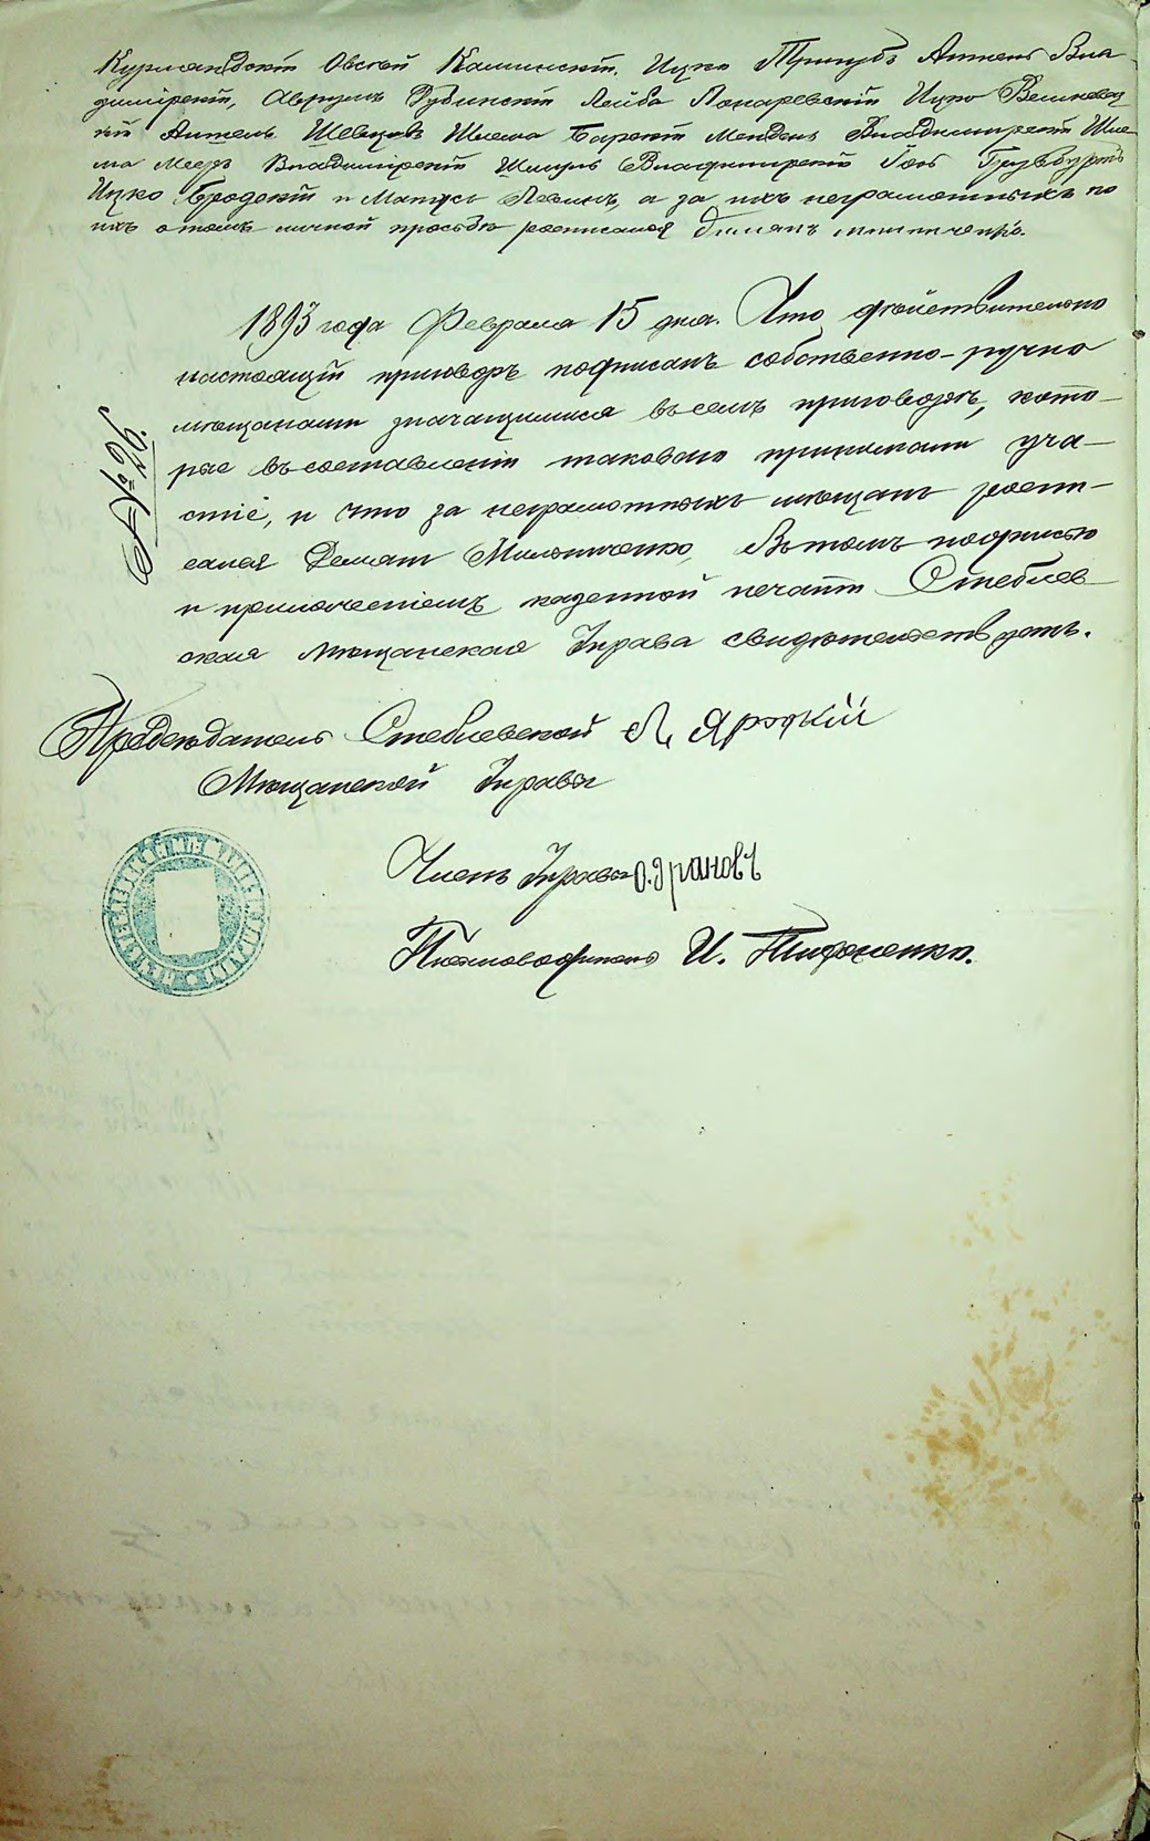 Курляндскій Овсѣй Каминскій, Ицко Трипубъ Аншель Вла-
димірскій, Аврумъ Рубинскій Лейба Понаревскій Ицко Великовац-
кій Аншель Шевцовъ Шлема Барскій Мендель Владимирскій Шле-
ма Мееръ Владимірскій Шмуль Владимірскій Гинзбургъ
Ицко Бродскій и Матусъ Левинъ, а за ихъ неграмотныхъ по
ихъ о томъ личной просьбѣ росписался
1893 года Февраля 15 дня. Что дѣйствительно
настоящій приговоръ подписанъ собственно-ручно
мѣщанами значащимися въ семъ приговорѣ, кото-
рые въ составленіи таковаго принимали уча-
стіе, и что за неграмотныхъ мѣщанъ роспи-
сался Демьян, въ томъ подписью
и приложеніемъ казенной печати Стеблев-
ская Мѣщанская Управа свидѣтельствуетъ.
№ 97.
Предсѣдатель Стеблевской Л. Яроцкій
Мѣщанской Управы
Членъ Управы
Письмоводитель И.